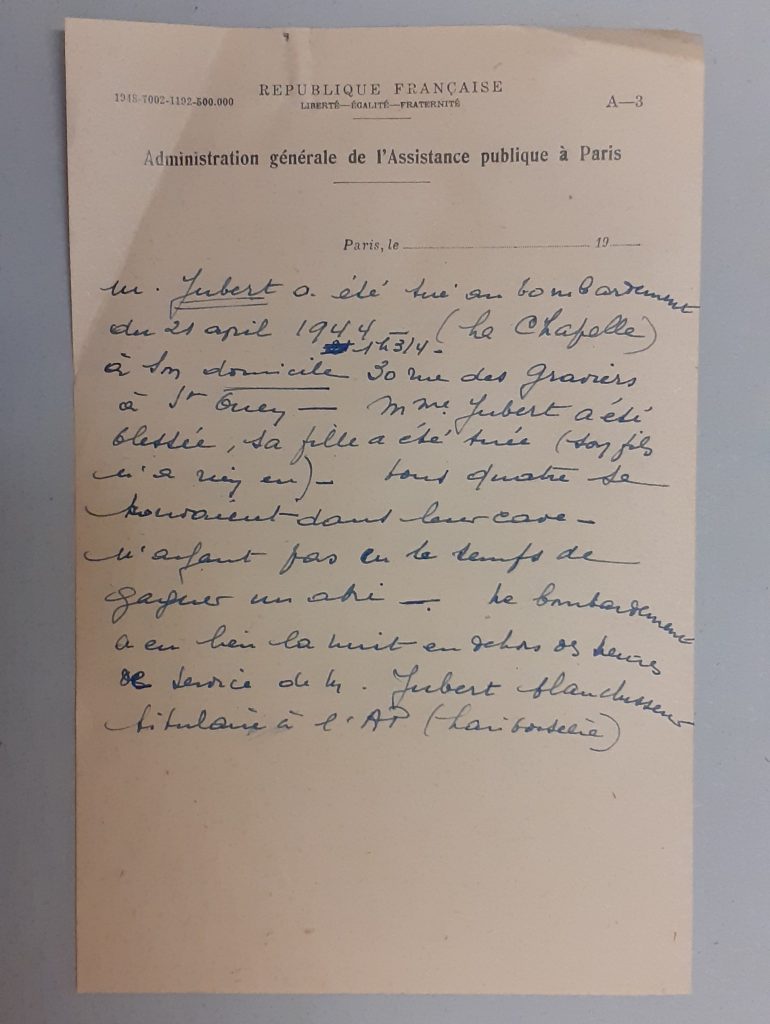 1948-7002-1192-500.000
REPUBLIQUE FRANÇAISE
LIBERTÉ—ÉGALITÉ—FRATERNITÉ
A—3
Administration générale de l'Assistance publique à Paris
Paris, le 19
M. Jubert a été tué au bombardement
du 21 april 1944 — (La Chapelle)
1h 3/4 -
à son domicile 30 rue des Graviers
à St Ouen — Mme Jubert a été
blessée, sa fille a été tuée (son fils
n'a rien eu) — tous quatre se
trouvaient dans leur cave —
n'ayant pas eu le temps de
gagner un abri — Le bombardement
a eu lieu la nuit en dehors des heures
de service de M. Jubert blanchisseur
titulaire à l'AP (Lariboisière)